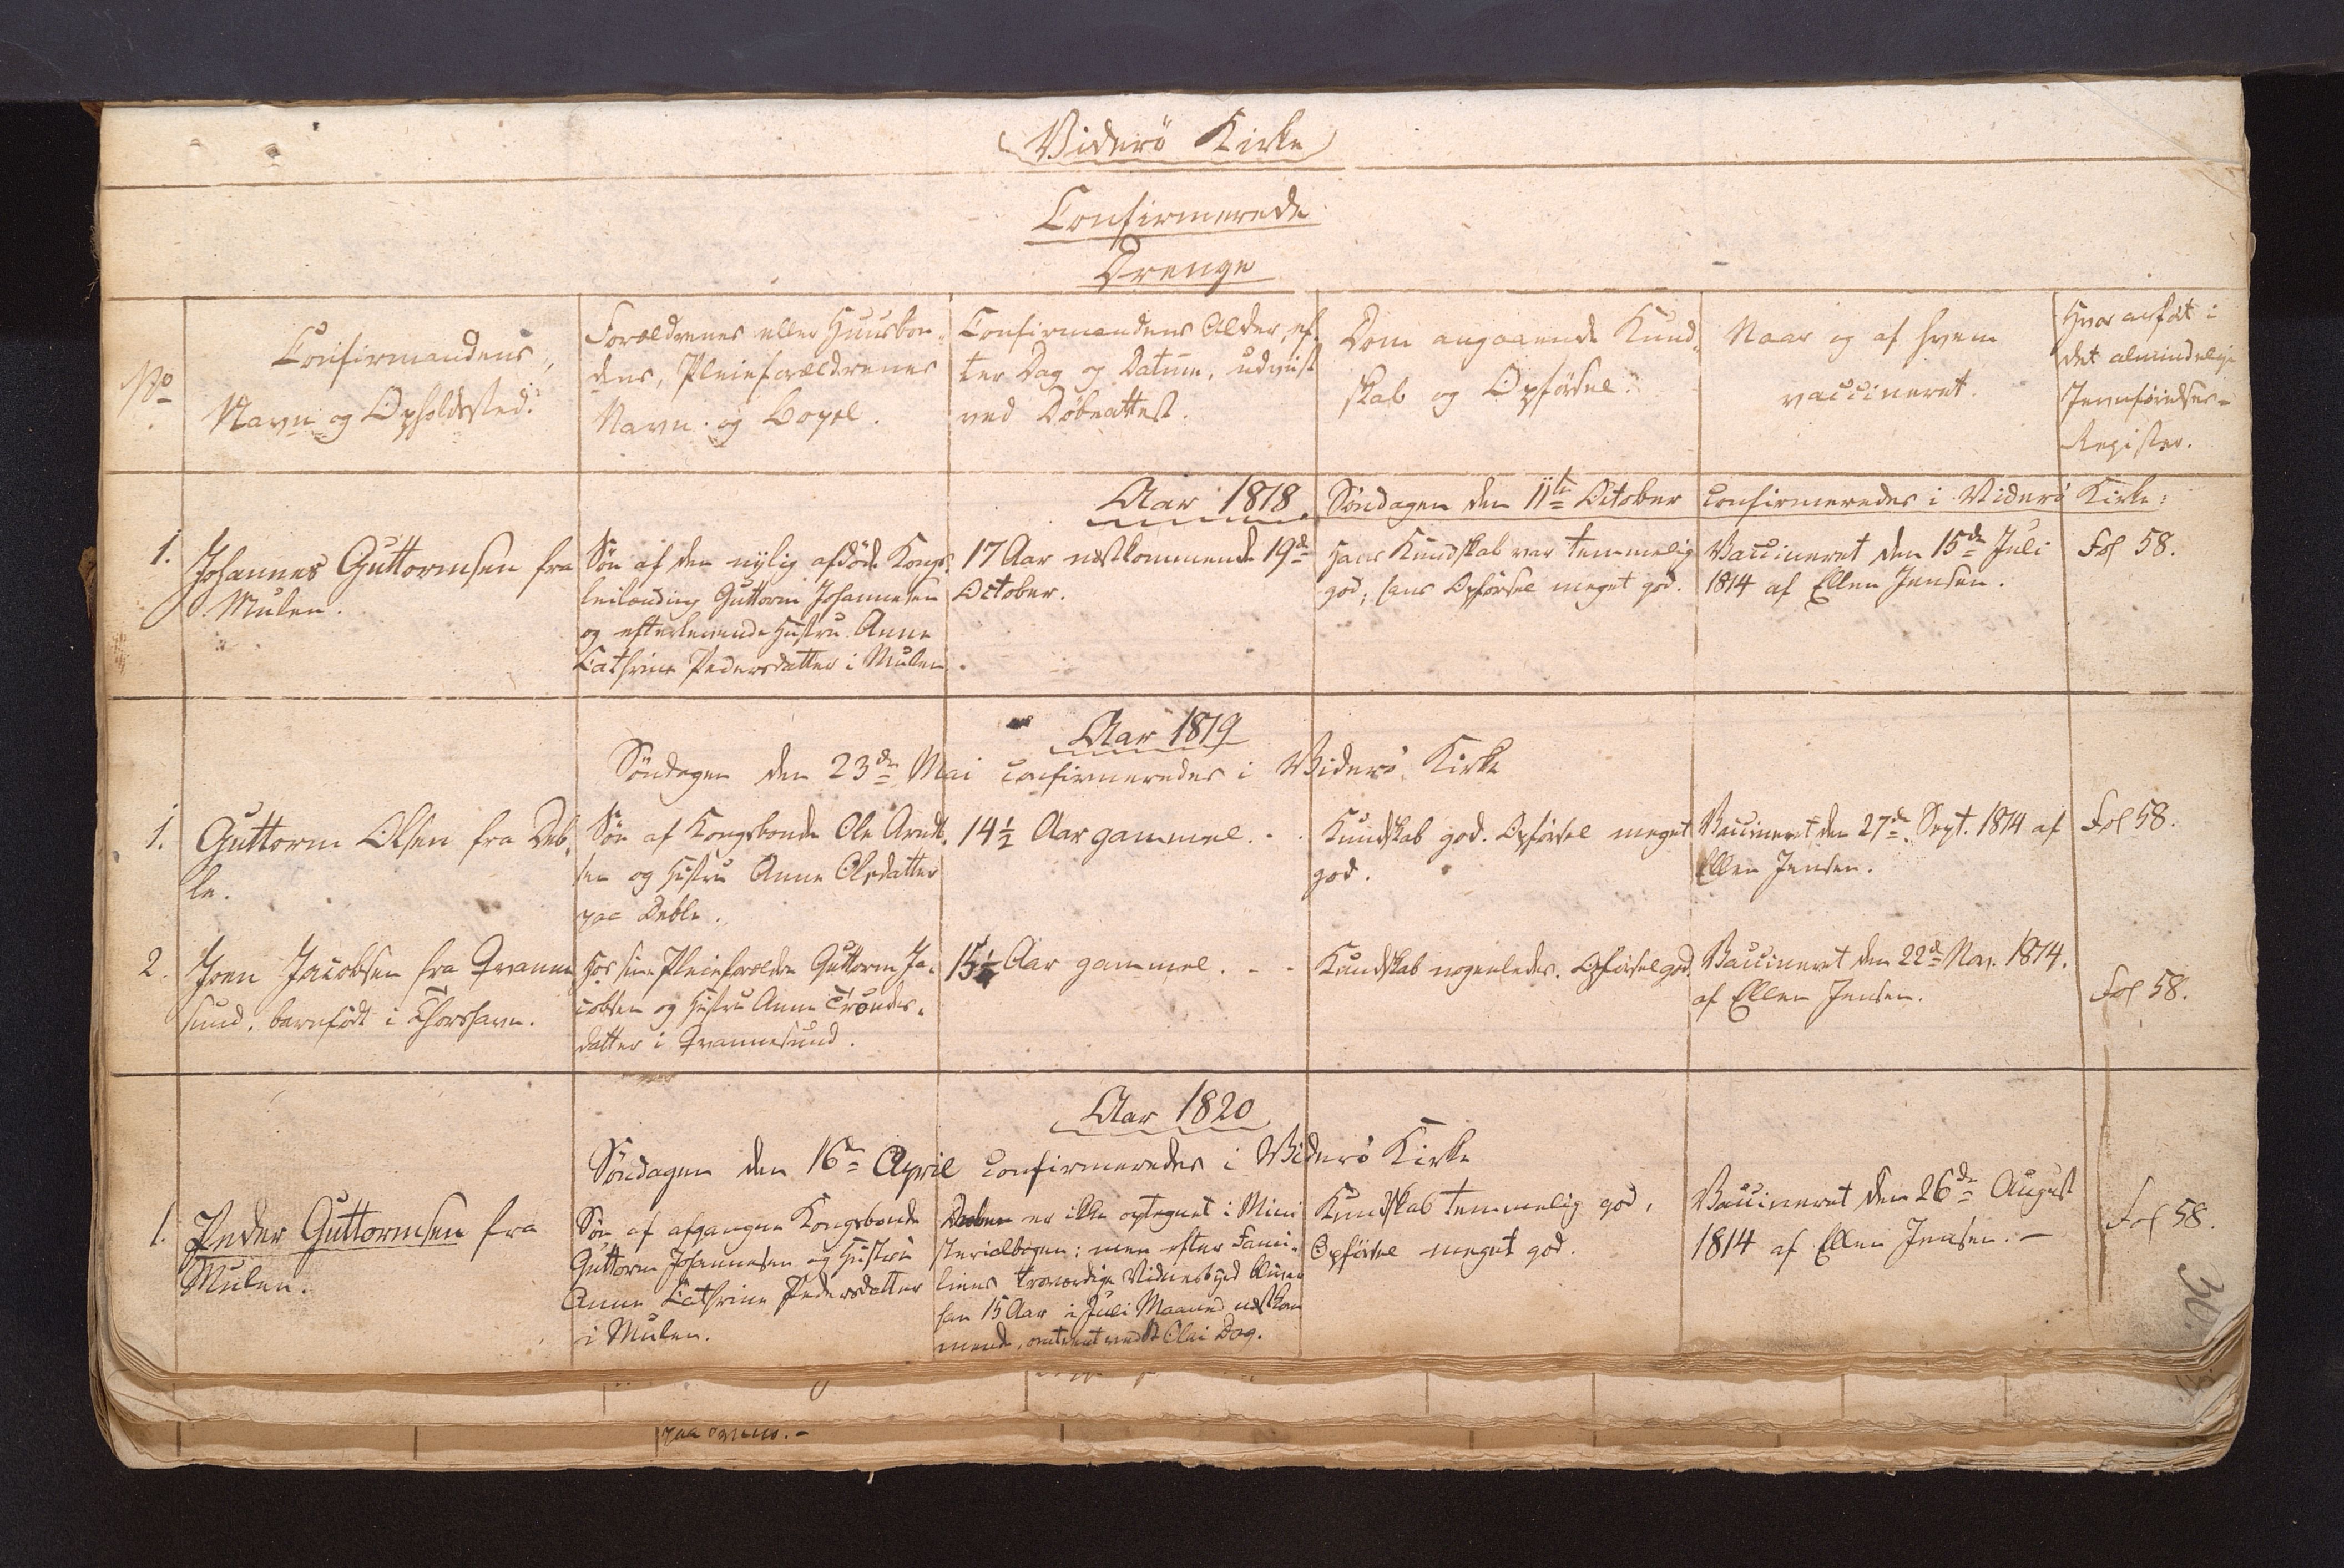 Viderö Kirke
Confirmerede
Drenge
No
Confirmandens
Navn og Opholdssted.
Forældrenes eller Huusbon-
dens, Pleieforældrenes
Navn og Bopel.
Confirmandens Alder, ef-
ter Dag og Datum, udviist
ved Döbeattest.
Dom angaaende Kund-
skab og Opförsel.
Naar og af hvem
vaccineret.
Hvor anfört i
det almindelige
Jevnförelses-
Register.
Aar 1818. Söndagen den 11te October confirmeredes i Viderö Kirke:
1.
Johannes Guttormsen fra
Mulen.
Sön af den nylig afdöde Kongs-
leilænding Guttorm Johannesen
og efterlevende Hustru Anne
Cathrine Pedersdatter i Mulen.
17 Aar nestkommende 19de
October.
Hans Kundskab var temmelig
god; hans Opförsel meget god.
Vaccineret den 15de Juli
1814 af Ellen Jensen.
Fol 58.
Aar 1819
Söndagen den 23de Mai confirmeredes i Viderö Kirke
1.
Guttorm Olsen fra Deb-
le.
Sön af Kongsbonde Ole Arndt-
sen og Hustru Anne Olsdatter
paa Deble.
14½ Aar gammel.
Kundskab god. Opförsel meget
god.
Vaccineret den 27de Sept. 1814 af
Ellen Jensen.
Fol 58.
2.
Joen Jacobsen fra Qvanne
sund, barnfödt i Thorshavn.
Hos sine Pleieforældre Guttorm Ja-
cobsen og Hustru Anne Tröndes-
datter i Qvannesund.
15½ Aar gammel.
Kundskab nogenledes. Opförsel god.
Vaccineret den 22de Nov. 1814.
af Ellen Jensen.
Fol 58.
Aar 1820
Söndagen den 16de April confirmeredes i Viderö Kirke
1.
Peder Guttormsen fra
Mulen.
Sön af afgangne Kongsbonde
Guttorm Johannesen og Hustru
Anne Cathrine Pedersdatter
i Mulen.
Daaben er ikke optegnet i Mini
sterialbogen; men efter Fami-
liens troværdige Vidnesbyrd bliver
han 15 Aar i Juli Maaned nestkom
mende, omtrent ved St Olai Dag.
Kundskab temmelig god,
Opförsel meget god.
Vaccineret den 26de August
1814 af Ellen Jensen. -
Fol 58.
30.